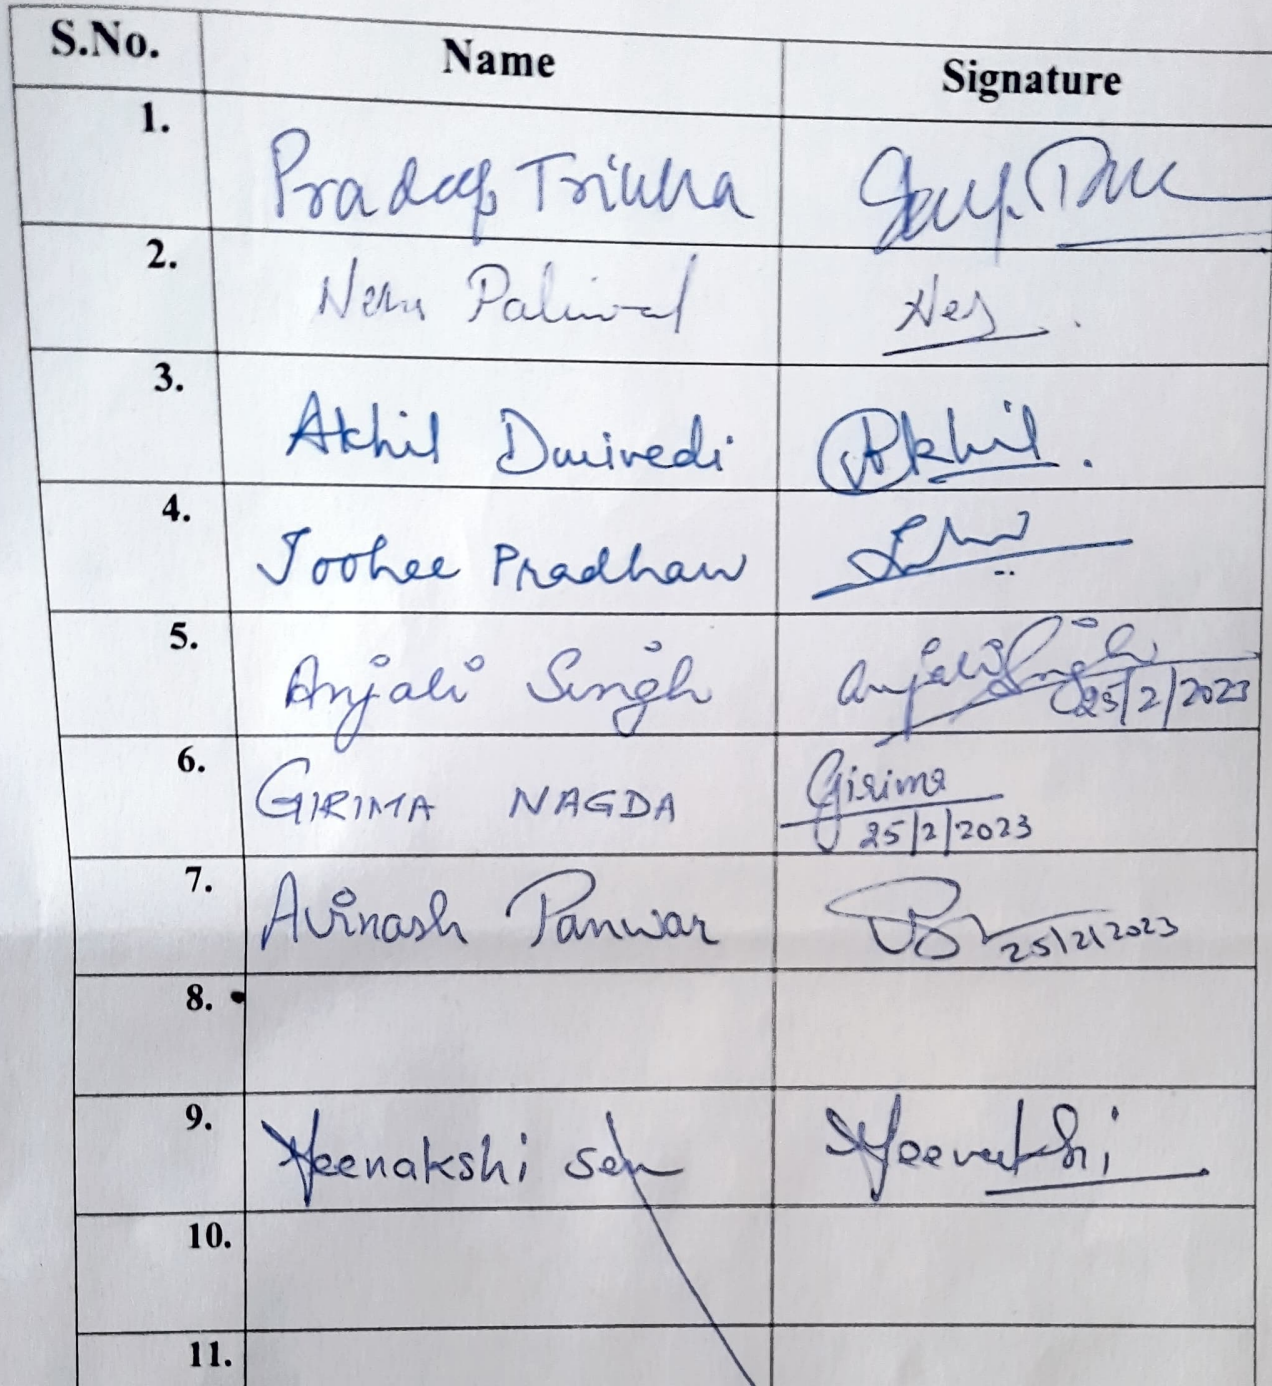 S.No. Name Signature
1. Pradeep Trikha
2. Paliwal
3. Akhil Dwivedi Akhil.
4. Joohee Pradhan
5. Anjali Singh Anjali Singh
25/2/2023
6. GIRIMA NAGDA Girima
25/2/2023
7. Avinash Panwar 25/2/2023
8.
9. Meenakshi Sen Meenakshi
10.
11.